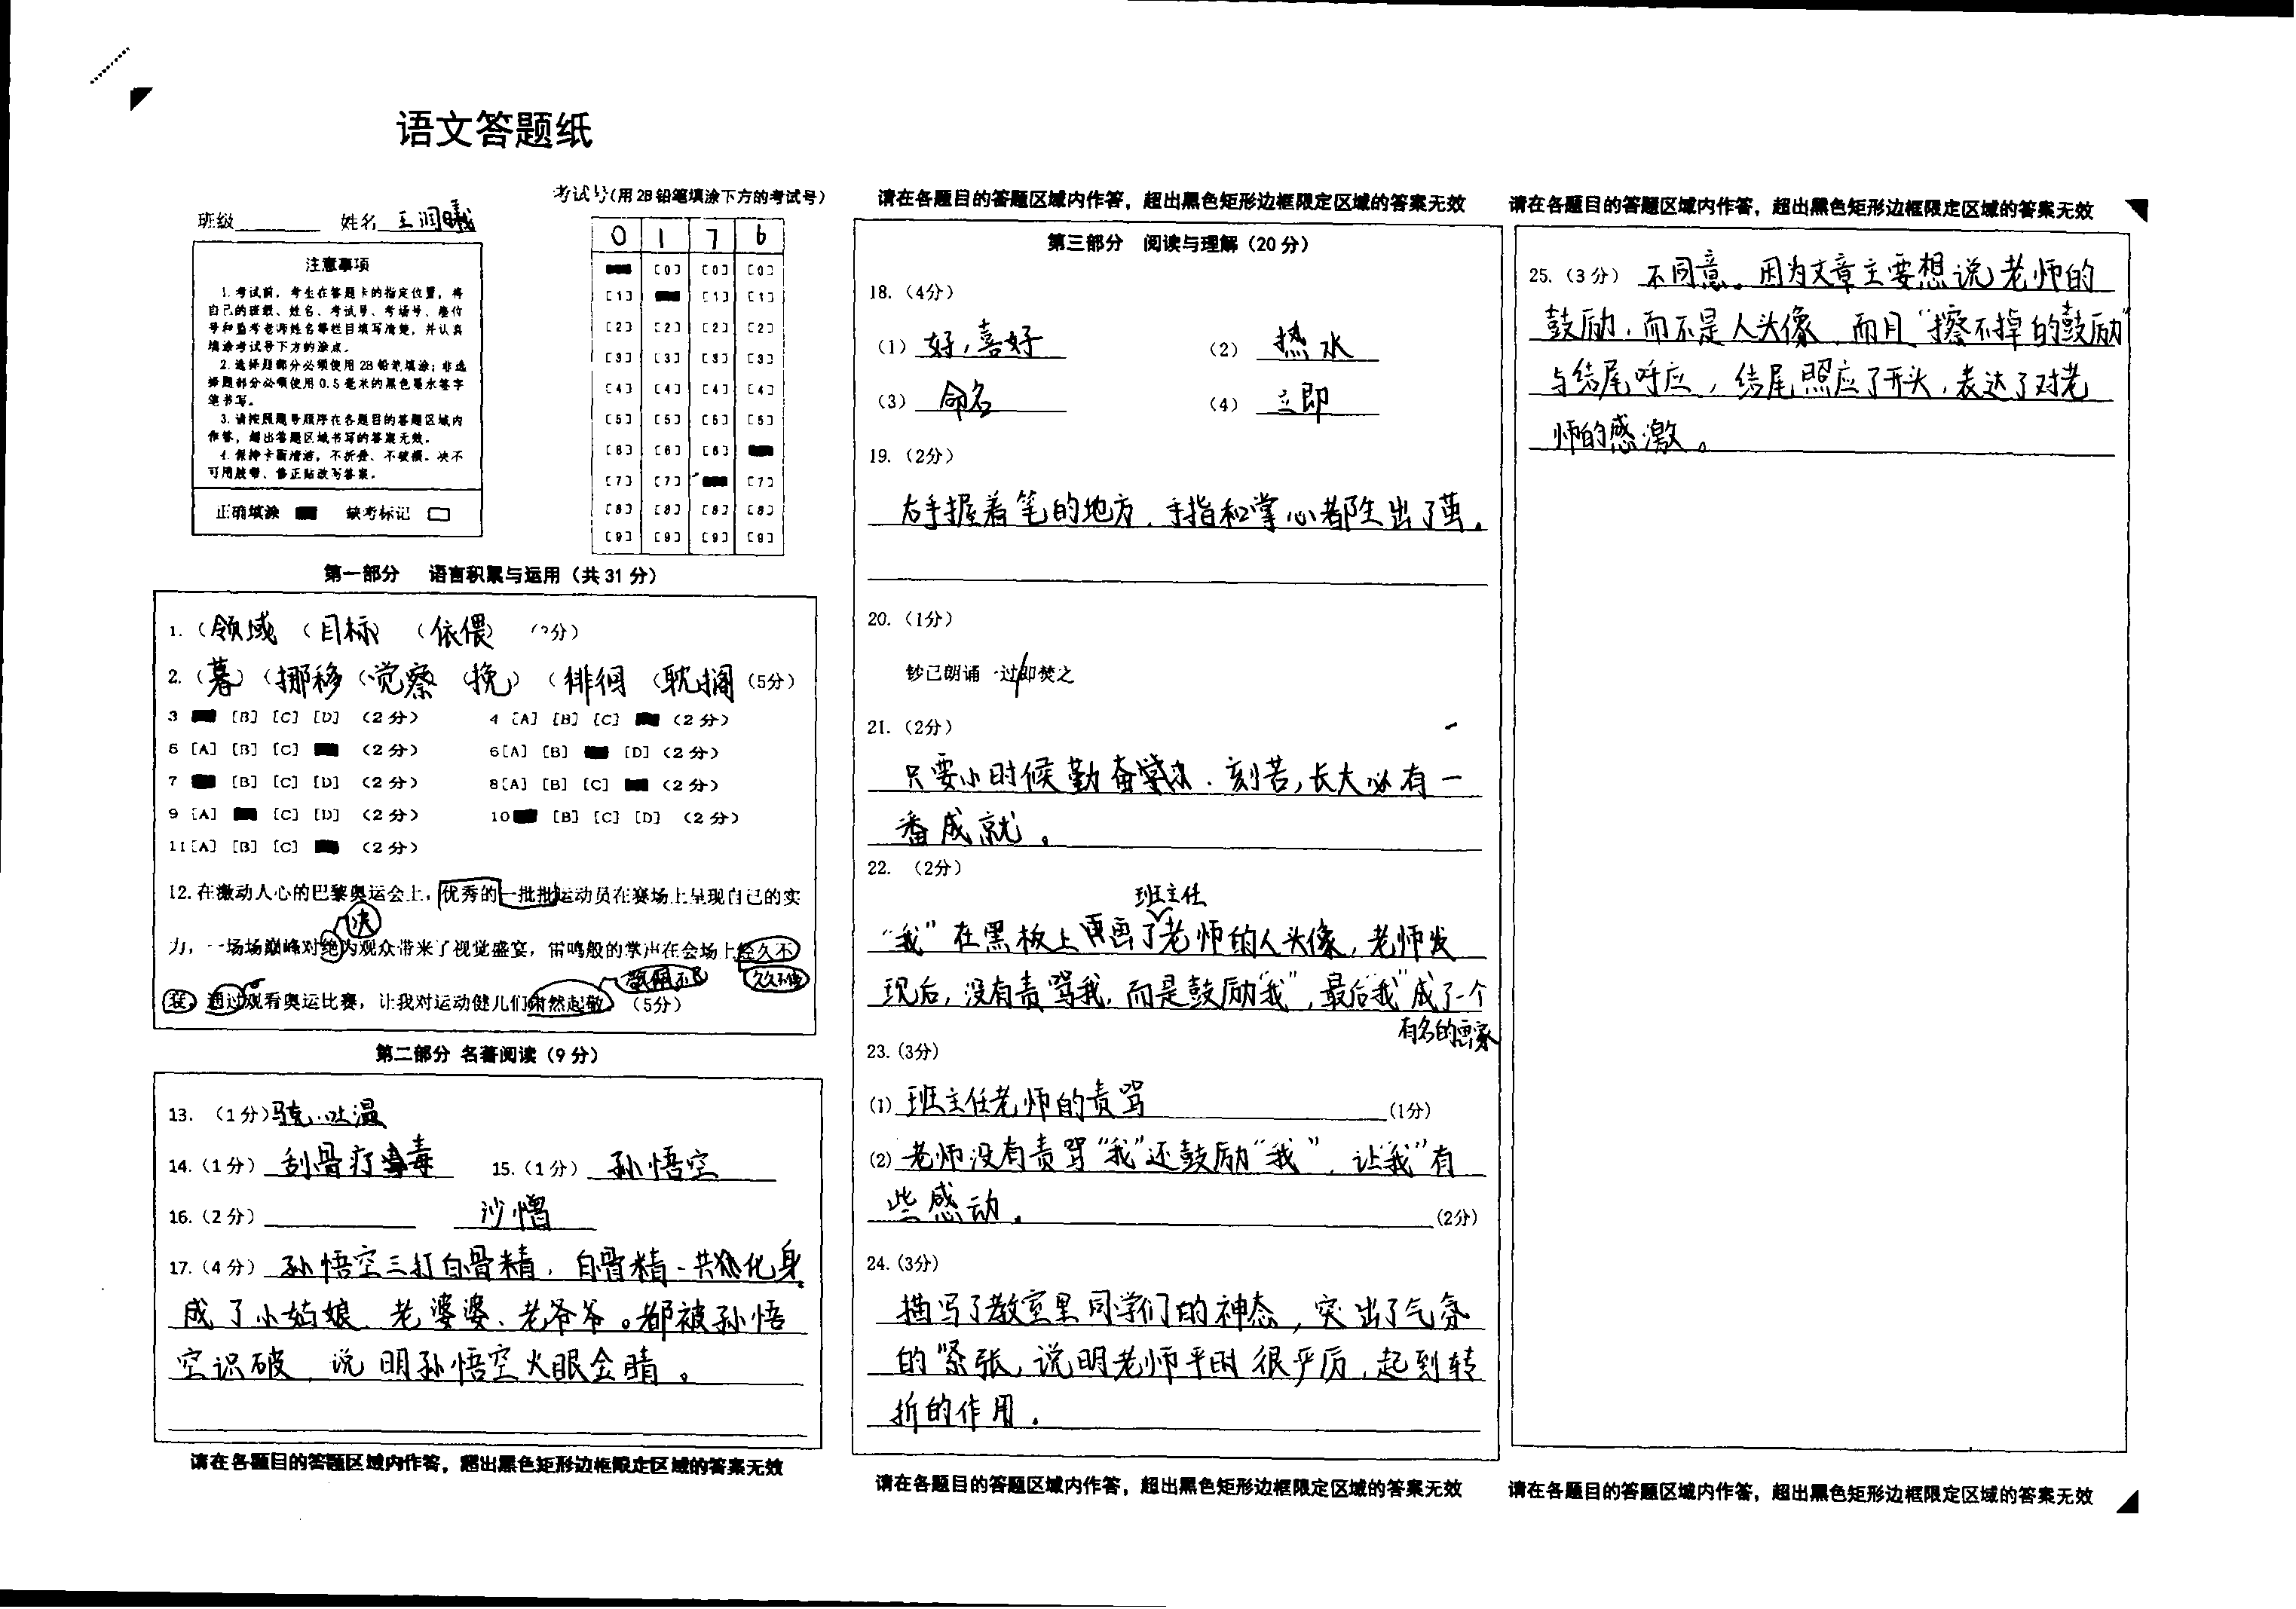 语文答题纸
班级 姓名 王润曦
考试号(用2B铅笔填涂下方的考试号)
0 1 7 6
[0] [0] [0]
[1] [1] [1]
[2] [2] [2] [2]
[3] [3] [3] [3]
[4] [4] [4] [4]
[5] [5] [5] [5]
[6] [6] [6]
[7] [7] [7]
[8] [8] [8] [8]
[9] [9] [9] [9]
注意事项
1.考试前,考生在答题卡的指定位置,将
自己的班级、姓名、考试号、考场号、座位
号和监考老师姓名等栏目填写清楚,并认真
填涂考试号下方的涂点。
2.选择题部分必须使用2B铅笔填涂;非选
择题部分必须使用0.5毫米的黑色墨水签字
笔书写。
3.请按照题号顺序在各题目的答题区域内
作答,超出答题区域书写的答案无效。
4.保持卡面清洁,不折叠、不破损。决不
可用胶带、修正贴改写答案。
正确填涂 缺考标记
第一部分 语言积累与运用(共31分)
1.(领域 (目标) (依偎 (分)
2.(暮)(挪移(觉察 (挽) (徘徊 (耽搁(5分)
3 [B] [C] [D] (2分) 4 [A] [B] [C] (2分)
5 [A] [B] [C] (2分) 6[A] [B] [D](2分)
7 [B] [C] [D] (2分) 8[A] [B] [C] (2分)
9 [A] [C] [D] (2分) 10 [B] [C] [D] (2分)
11[A] [B] [C] (2分)
12.在激动人心的巴黎奥运会上,优秀的一批批运动员在赛场上呈现自己的实
决
力,一场场巅峰对绝为观众带来了视觉盛宴,雷鸣般的掌声在会场上经久不
衰。通过观看奥运比赛,让我对运动健儿们肃然起敬。(5分)
第二部分 名著阅读(9分)
13.(1分)骁 吐温
14.(1分)刮骨疗毒 15.(1分)孙悟空
16.(2分) 沙憎
17.(4分)孙悟空三打白骨精,白骨精一共化身
成了小姑娘、老婆婆、老爷爷。都被孙悟
空识破,说明孙悟空火眼金睛。
请在各题目的答题区域内作答,超出黑色矩形边框限定区域的答案无效
请在各题目的答题区域内作答,超出黑色矩形边框限定区域的答案无效
第三部分 阅读与理解(20分)
18.(4分)
(1)好,喜好 (2)热水
(3)命名 (4)立即
19.(2分)
右手握着笔的地方,手指和掌心都生出了茧。
20.(1分)
钞已朗诵一过/即焚之
21.(2分)
只要小时候勤奋、刻苦,长大必有一
番成就。
22.(2分)
班主任
“我”在黑板上画了老师的人头像,老师发
现后,没有责骂我,而是鼓励“我”,最后“我”成了一个
有名的画家
23.(3分)
(1)班主任老师的责骂(1分)
(2)老师没有责骂“我”还鼓励“我”,让“我”有
些感动。(2分)
24.(3分)
描写了教室里同学们的神态,突出了气氛
的紧张,说明老师平时很严厉,起到转
折的作用。
请在各题目的答题区域内作答,超出黑色矩形边框限定区域的答案无效
请在各题目的答题区域内作答,超出黑色矩形边框限定区域的答案无效
25.(3分)不同意。因为文章主要想说老师的
鼓励,而不是人头像,而且“擦不掉的鼓励”
与结尾呼应,结尾照应了开头,表达了对老
师的感激。
请在各题目的答题区域内作答,超出黑色矩形边框限定区域的答案无效